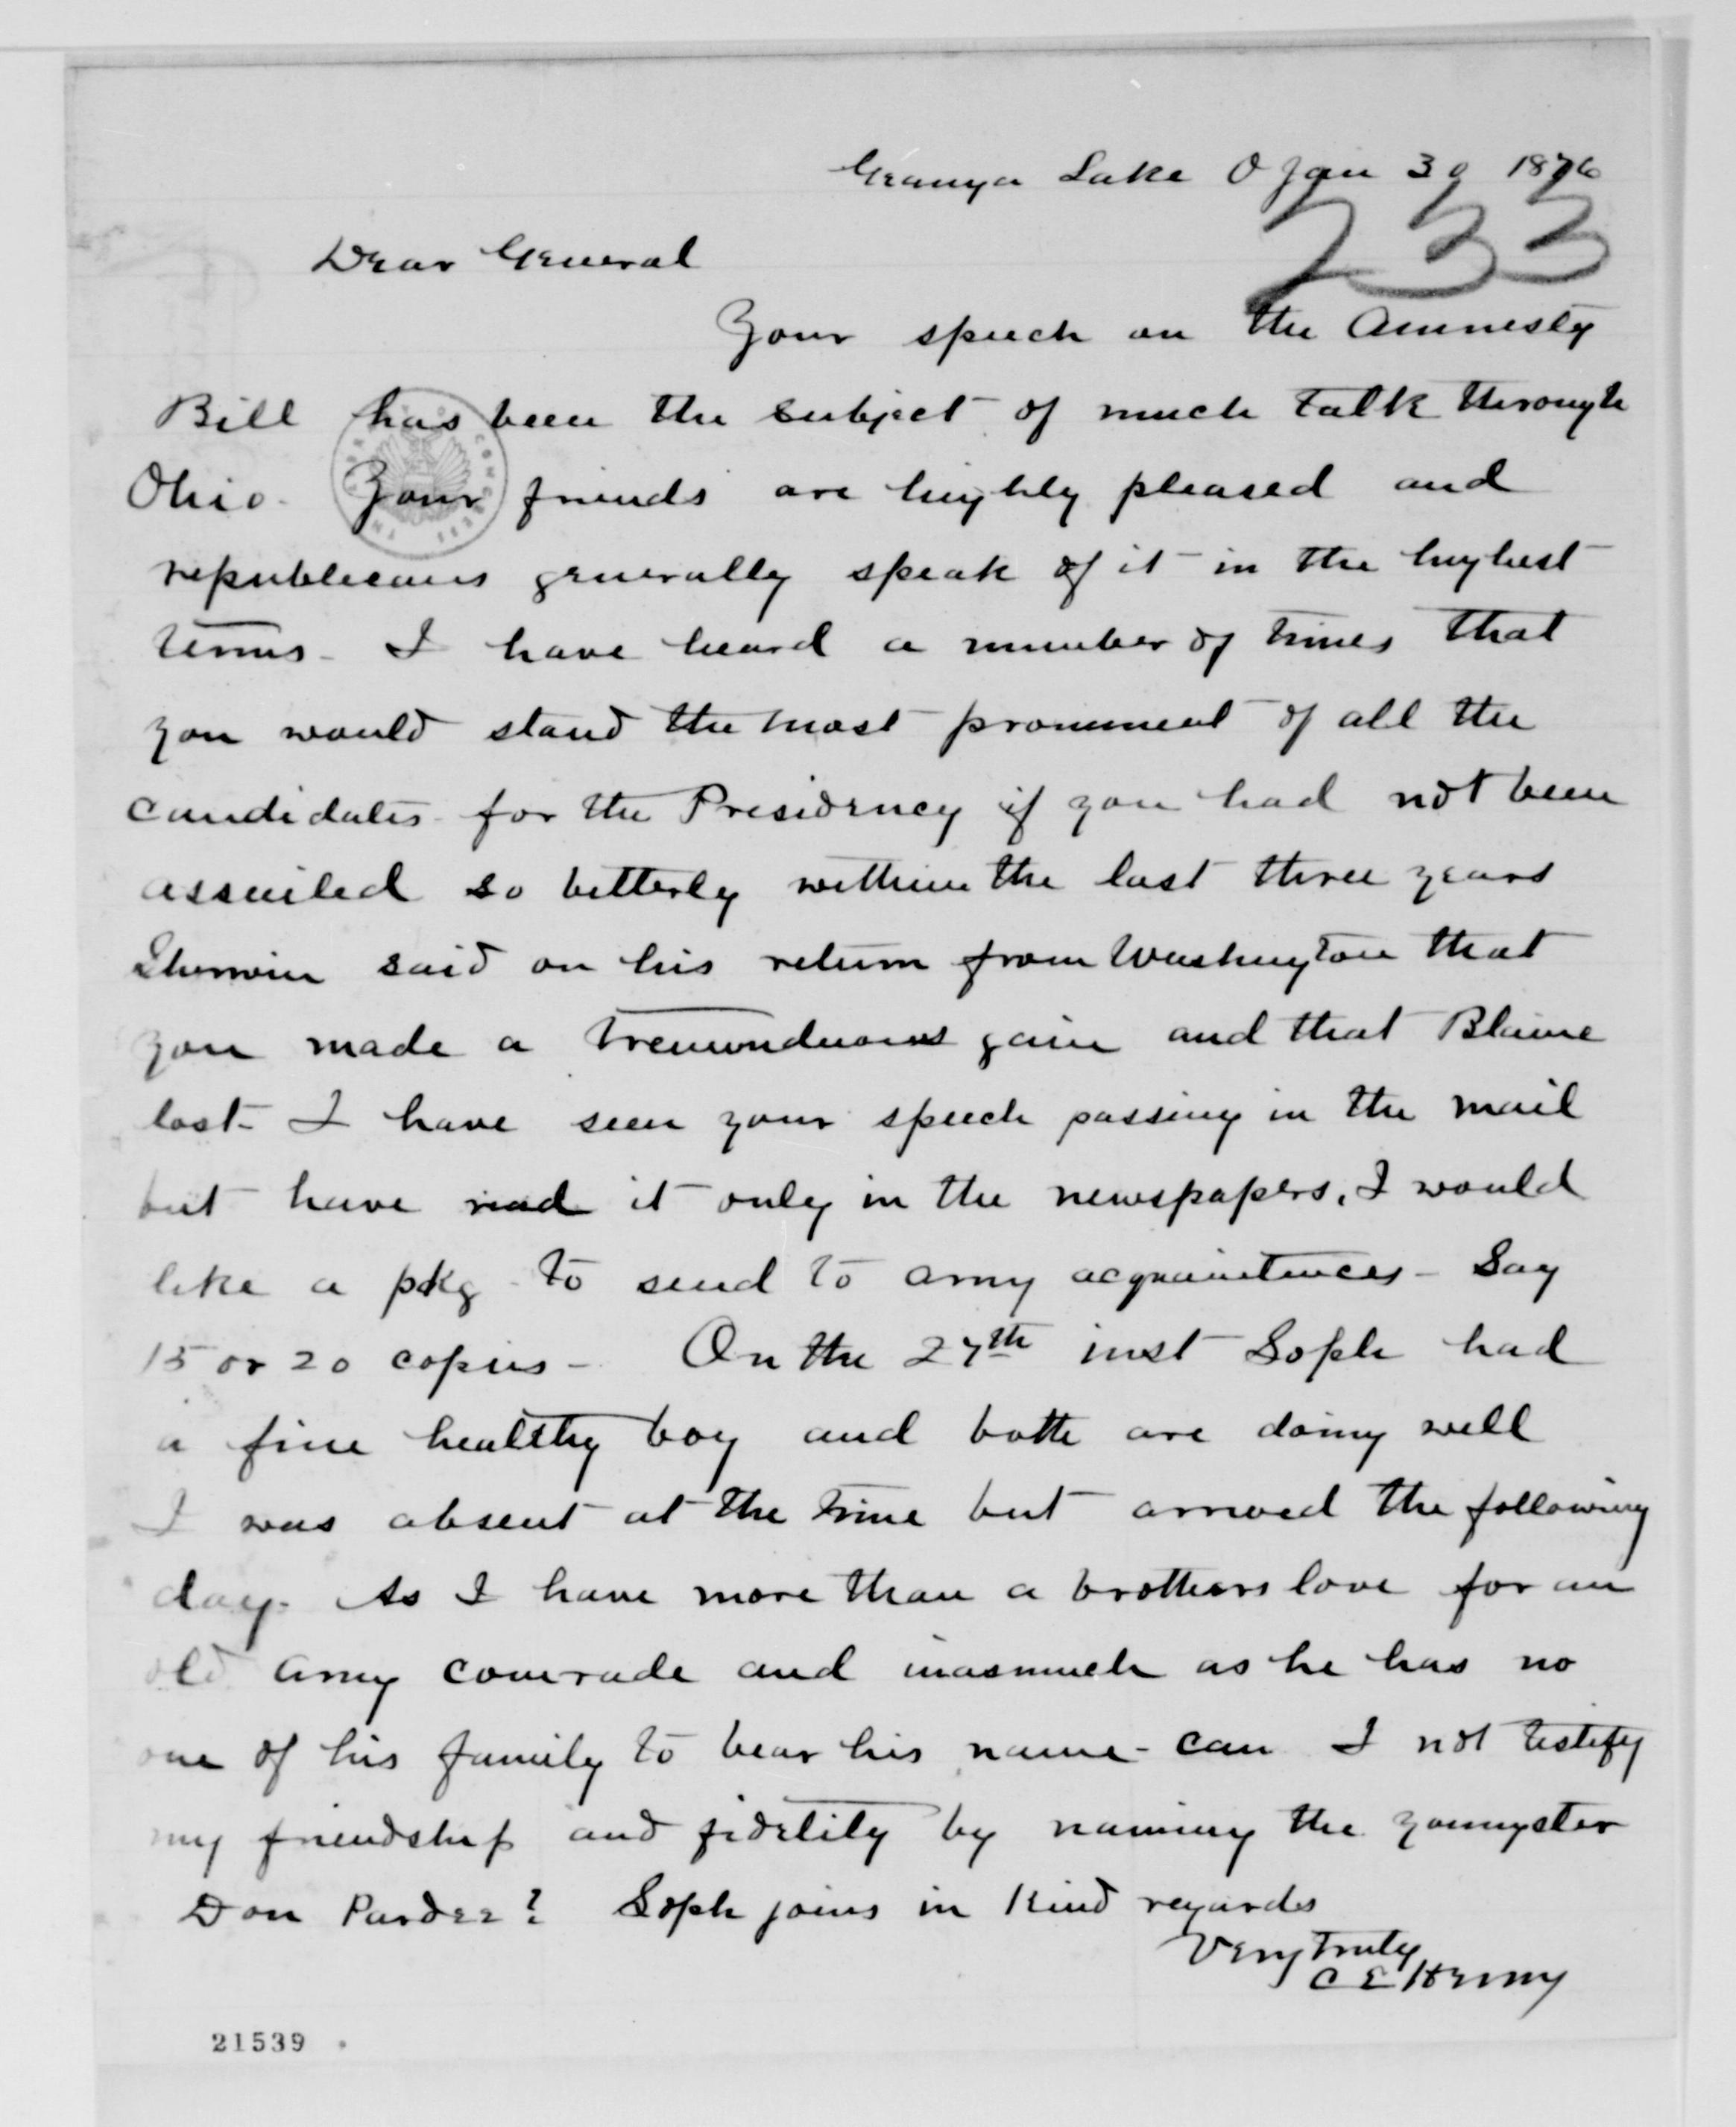 Geauga Lake O Jan 30 1876
233
Dear General
Your speech on the Amnesty
Bill has been the subject of much talk through
Ohio. Your friends are highly pleased and
republicans generally speak of it in the highest
terms - I have heard a number of times that
you would stand the most prominent of all the
candidates for the Presidency if you had not been
assailed so bitterly within the last three years
Sherwin said on his return from Washington that
you made a tremenduous gain and that Blaine
lost - I have seen your speech passing in the mail
but have read it only in the newspapers. I would
like a pkg to send to army acquaintences - Say
15 or 20 copies - On the 27th inst Soph had
a fine healthy boy and both are doing well
I was absent at the time but arrived the following
day. As I have more than a brothers love for an
old army comrade and inasmuch as he has no
one of his family to bear his name - can I not testify
my friendship and fidelity by naming the youngster
Don Pardee? Soph joins in kind regards
Very Truly
C E Henry
21539